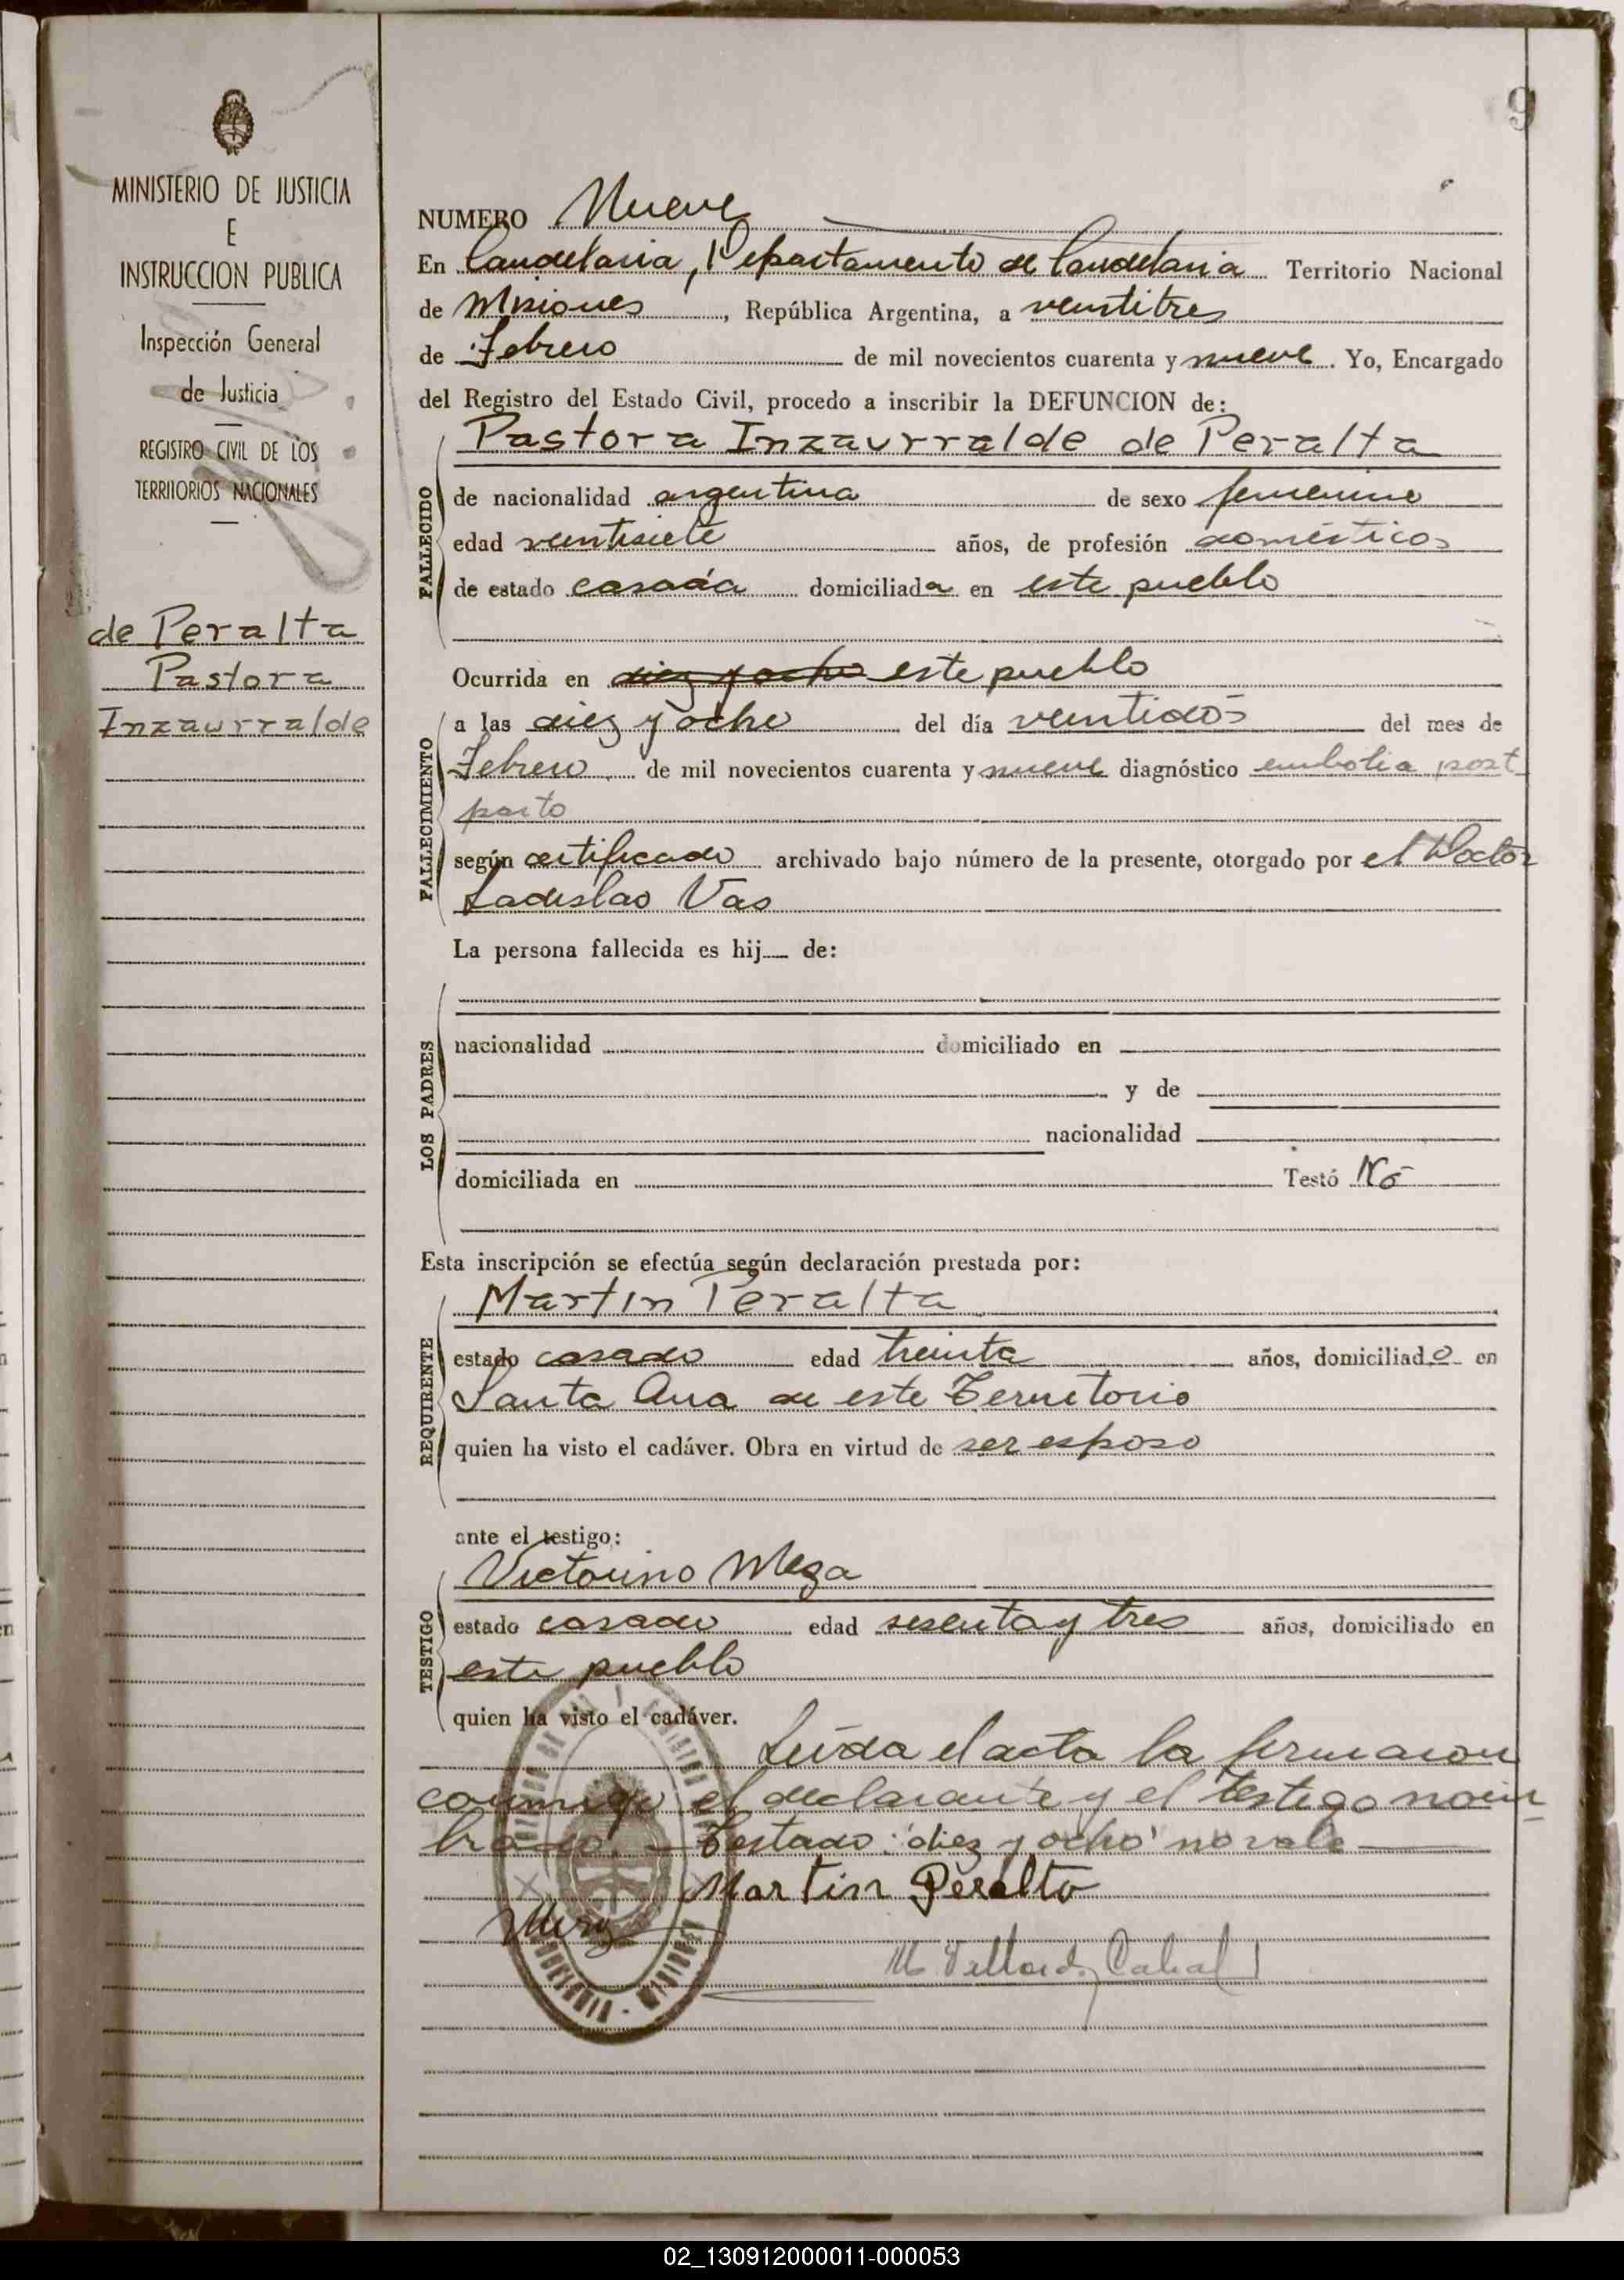 9
MINISTERIO DE JUSTICIA
E
INSTRUCCION PUBLICA
Inspección General
de Justicia
REGISTRO CIVIL DE LOS
TERRITORIOS NACIONALES
de Peralta
Pastora
Inzaurralde
NUMERO Nueve
En Candelaria, Departamento de Candelaria Territorio Nacional
de Misiones, República Argentina, a veintitres
de Febrero de mil novecientos cuarenta y nueve. Yo, Encargado
del Registro del Estado Civil, procedo a inscribir la DEFUNCION de:
Pastora Inzaurralde de Peralta
FALLECIDO
de nacionalidad argentina de sexo femenino
edad veintisiete años, de profesión domésticos
de estado casada domiciliada en este pueblo
Ocurrida en diez y ocho este pueblo
FALLECIMIENTO
a las diez y ocho del día veintidos del mes de
Febrero de mil novecientos cuarenta y nueve diagnóstico embolia post
parto
según certificado archivado bajo número de la presente, otorgado por el Doctor
Ladislao Vas
La persona fallecida es hij de:
LOS PADRES
nacionalidad domiciliado en
y de
nacionalidad
domiciliada en Testó No
Esta inscripción se efectúa según declaración prestada por:
Martin Peralta
REQUIRENTE
estado casado edad treinta años, domiciliado en
Santa Ana de este Territorio
quien ha visto el cadáver. Obra en virtud de ser esposo
ante el testigo:
Victorino Meza
TESTIGO
estado casado edad sesenta y tres años, domiciliado en
este pueblo
quien ha visto el cadáver.
Leída el acta la firmaron
conmigo el declarante y el testigo nom
brado. - Testado: "diez y ocho" no vale
Martin Peralto
Meza
Cabral
02_130912000011-000053